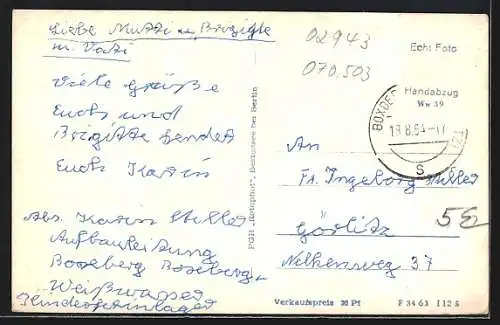 Liebe Mutti u. Brigitte
u. Vati
Viele Grüße
Euch und
Brigitte sendet
Euch Karin
Abs. Karin Stiller
Aufbauleitung
Boxberg Boxberg
Weißwasser
Kinderferienlager
PGH „Rotophot“, Bestensee bei Berlin
02943
070,503
Echt Foto
Handabzug
Ww 59
BOXBERG
18.8.
S
An
Fr. Ingeborg Stiller
Görlitz
Nelkenweg 37
5€
Verkaufspreis 20 Pf
F 3463 112 S